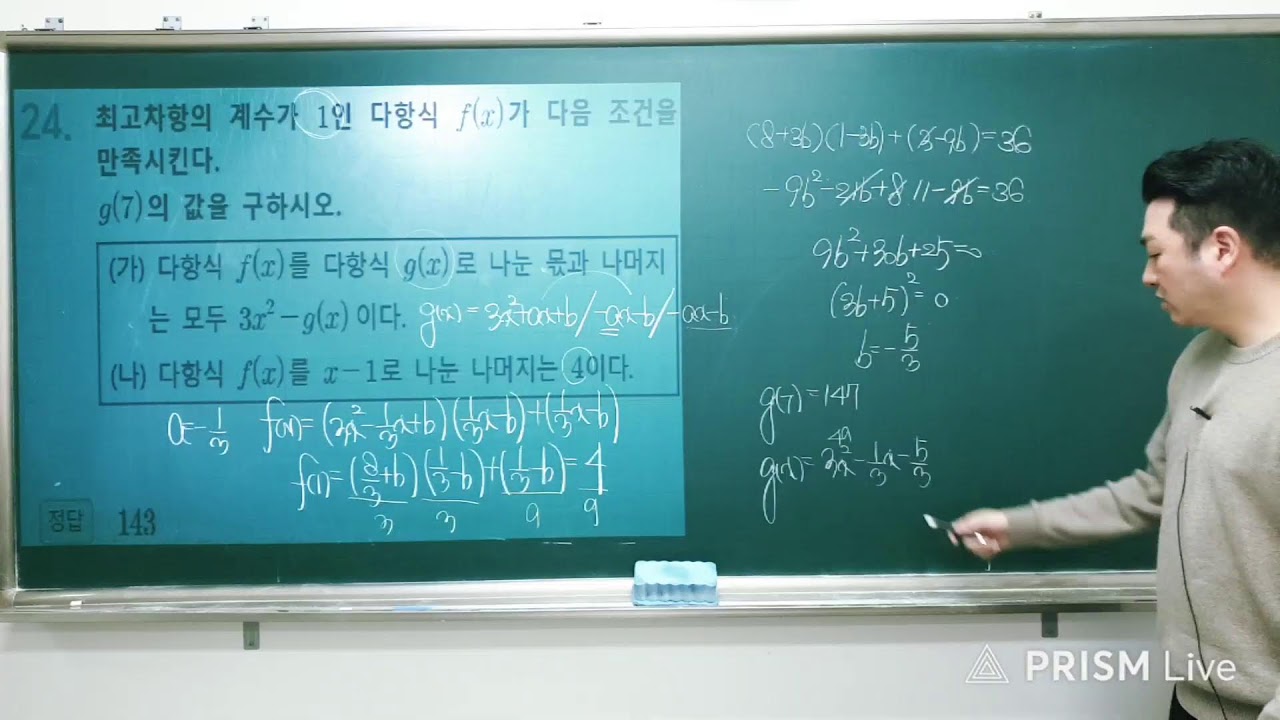 24. 최고차항의 계수가 1인 다항식 f(x)가 다음 조건을
만족시킨다.
g(7)의 값을 구하시오.
(가) 다항식 f(x)를 다항식 g(x)로 나눈 몫과 나머지
는 모두 3x²-g(x)이다.
g(x)=3x²+ax+b/-ax-b/-ax-b
(나) 다항식 f(x)를 x-1로 나눈 나머지는 4이다.
a=-1/3 f(x)=(3x²-1/3x+b)(1/3x-b)+(1/3x-b)
f(1)=(8/3+b)(1/3-b)+(1/3-b)=4
3 3 9 9
정답 143
(8+3b)(1-3b)+(3-9b)=36
9b²+30b+25=0
(3b+5)²=0
b=-5/3
g(7)=147
49
g(x)=3x²-1/3x-5/3
PRISM Live